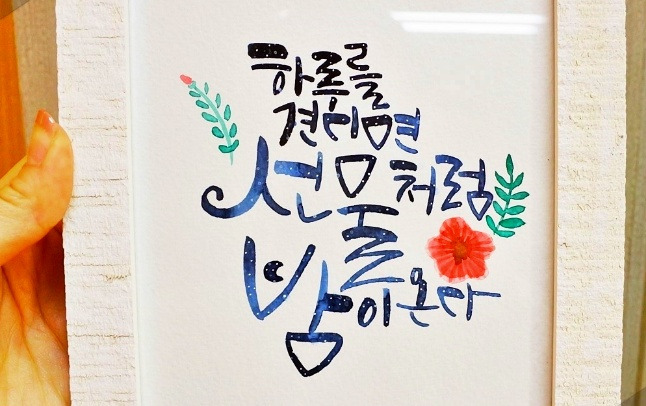 하루를
견디면
선물처럼
밤이온다